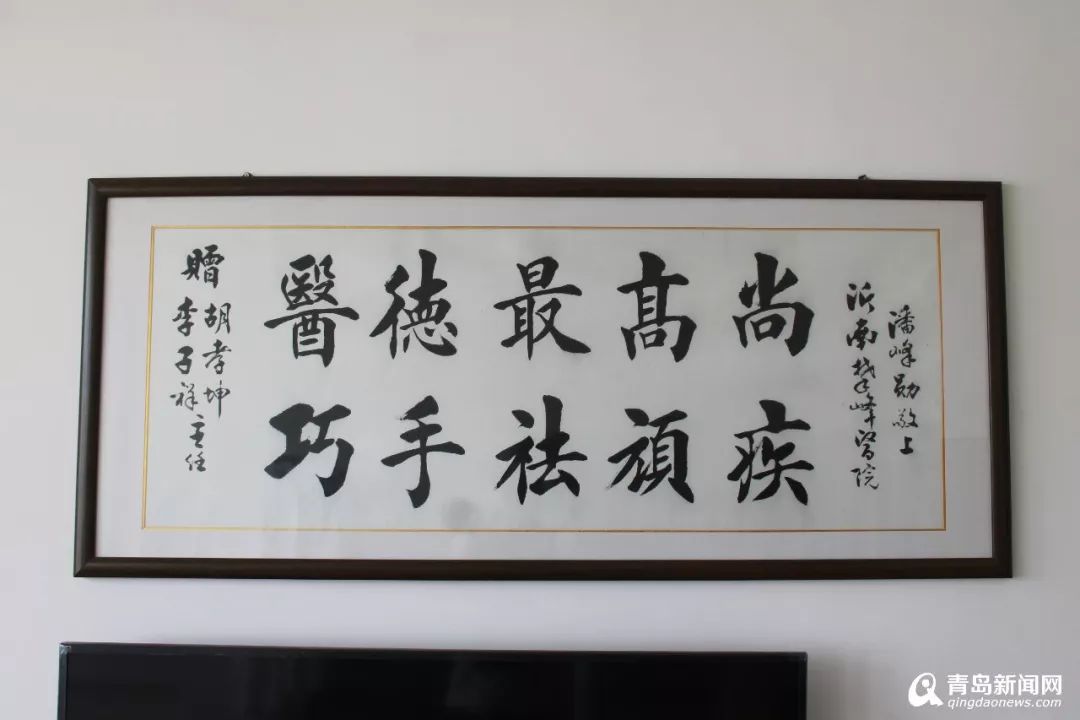 赠
胡孝坤
李子祥主任
醫德最高尚
巧手祛頑疾
沂南攀峰醫院
潘峰勋敬上
青岛新闻网
qingdaonews.com